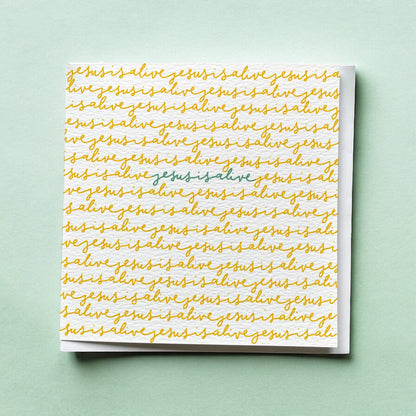 jesusisalivejesusisalivejesusisa
alivejesusisalivejesusisalivejes
isalivejesusisalivejesusisalive
jesusisalivejesusisalivejesusisal
alivejesusisalivejesusisalivejes
salivejesusisalivejesusisalivej
jesusisalivejesusisalivejesusisali
vejesusisalivejesusisalivejesusi
alivejesusisalivejesusisalivejes
usisalivejesusisalivejesusisalive
vejesusisalivejesusisalivejesusis
salivejesusisalivejesusisalivej
usisalivejesusisalivejesusisalive
vejesusisalivejesusisalivejesusis
salivejesusisalivejesusisalivejes